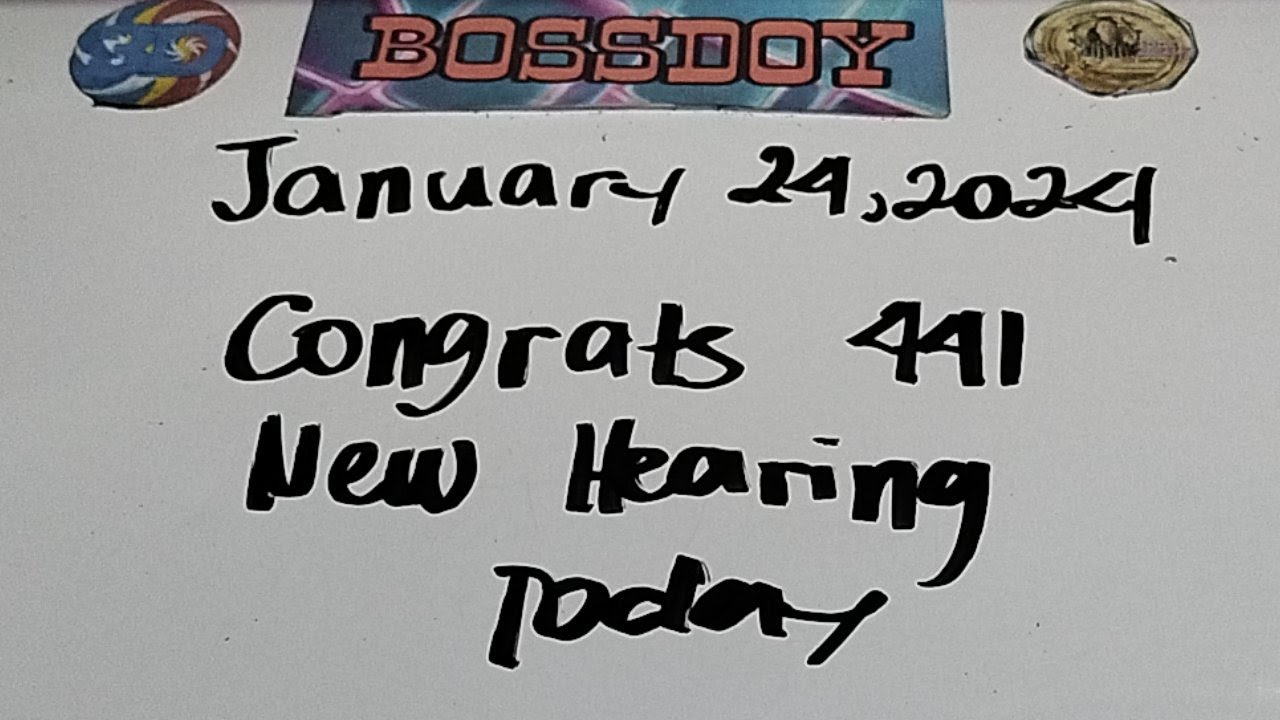 BOSSDOY
January 24,2024
Congrats 441
New Hearing
Today